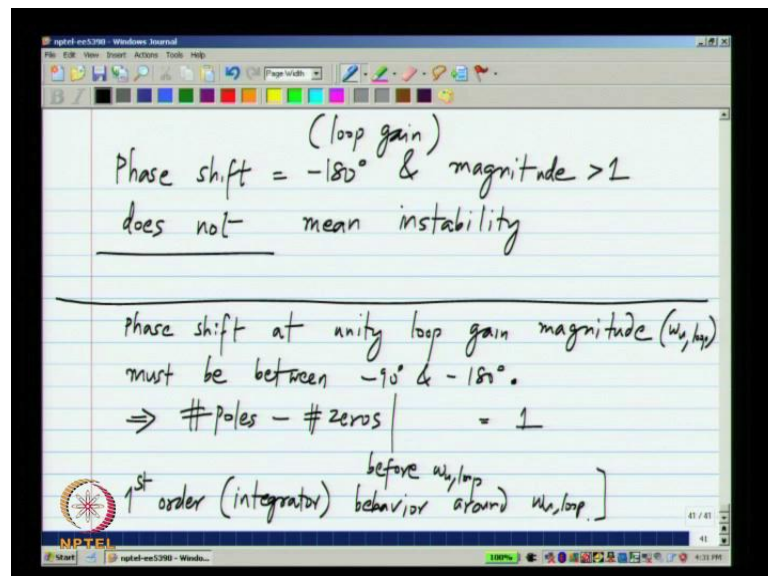 nptel-ee5390 - Windows Journal
File Edit View Insert Actions Tools Help
Page Width
B I
(loop gain)
Phase shift = -180° & magnitude > 1
does not mean instability
Phase shift at unity loop gain magnitude (ωu,loop)
must be between -90° & -180°.
⇒ #poles - #zeros | = 1
before ωu,loop
1st order (integrator) behavior around ωu,loop.]
NPTEL
41 / 41
41
Start nptel-ee5390 - Windo... 100% 4:31 PM